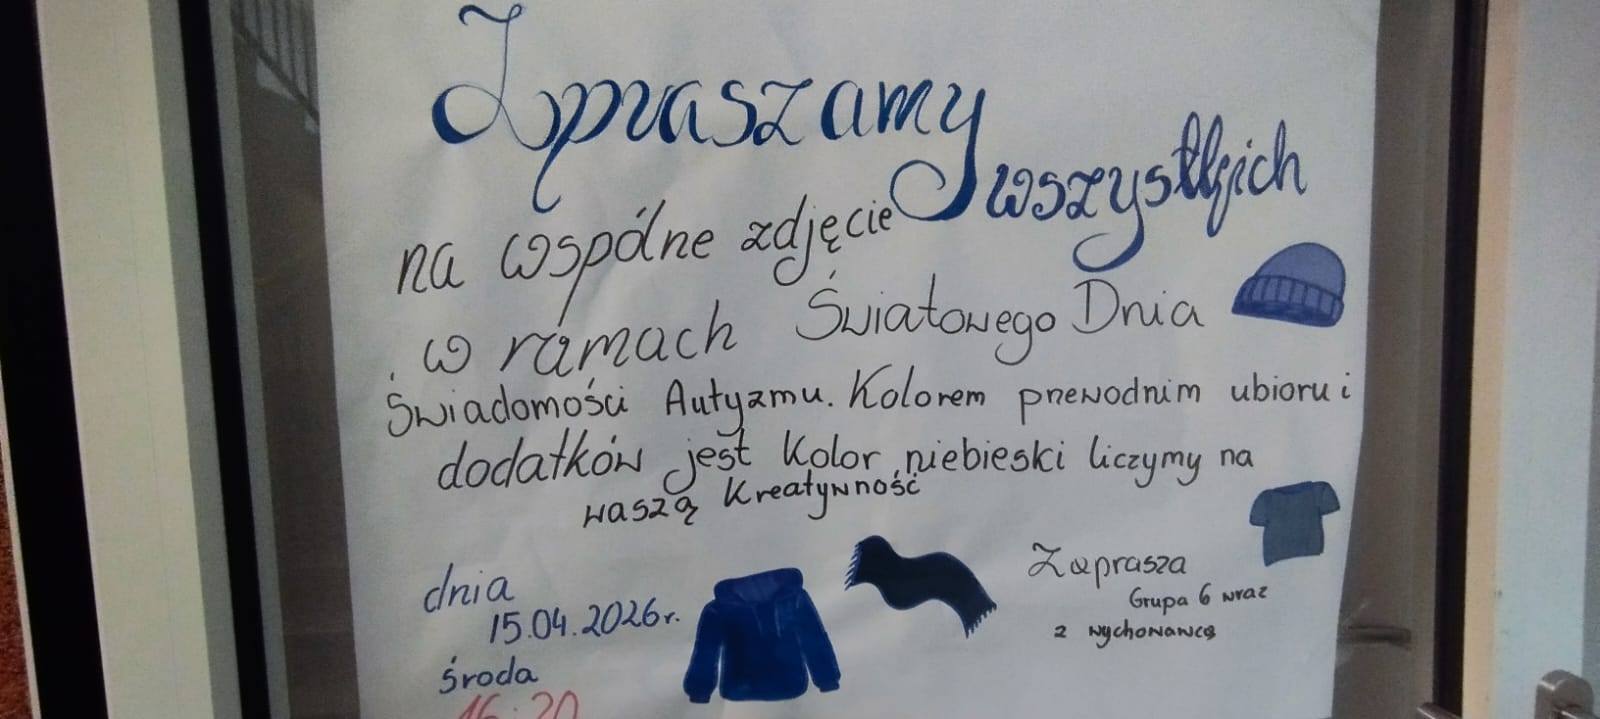 Zapraszamy
wszystkich
na wspólne zdjęcie
w ramach Światowego Dnia
Świadomości Autyzmu. Kolorem przewodnim ubioru i
dodatków jest kolor niebieski liczymy na
waszą kreatywność
dnia
15.04.2026r.
środa
16:20
Zaprasza
Grupa 6 wraz
z wychowawcą